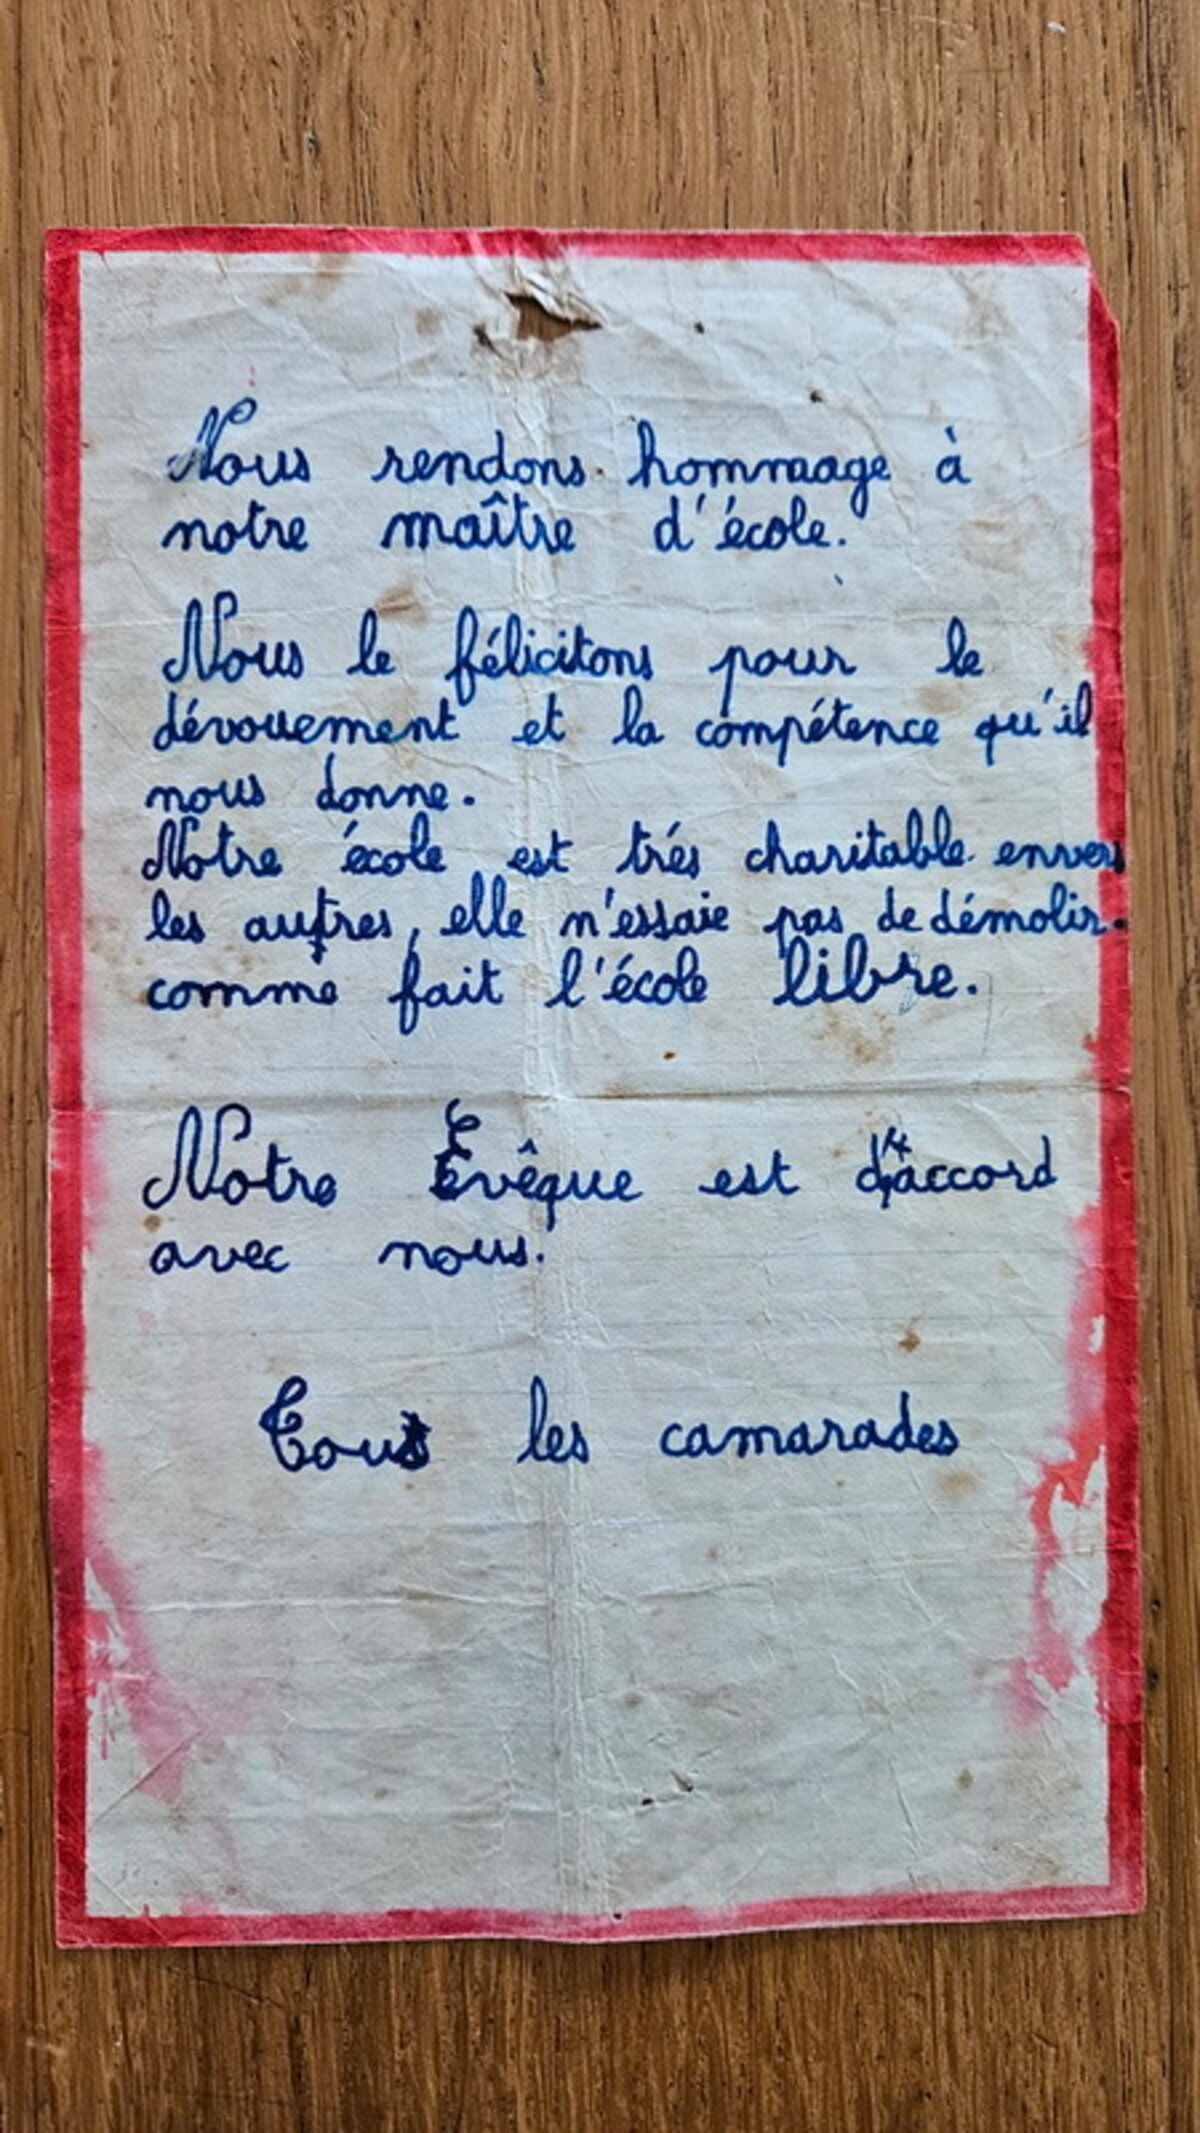 Nous rendons hommage à
notre maître d'école.
Nous le félicitons pour le
dévouement et la compétence qu'il
nous donne.
Notre école est trés charitable envers
les autres, elle n'essaie pas de démolir.
comme fait l'école libre.
Notre Evêque est d'accord
avec nous.
Tous les camarades